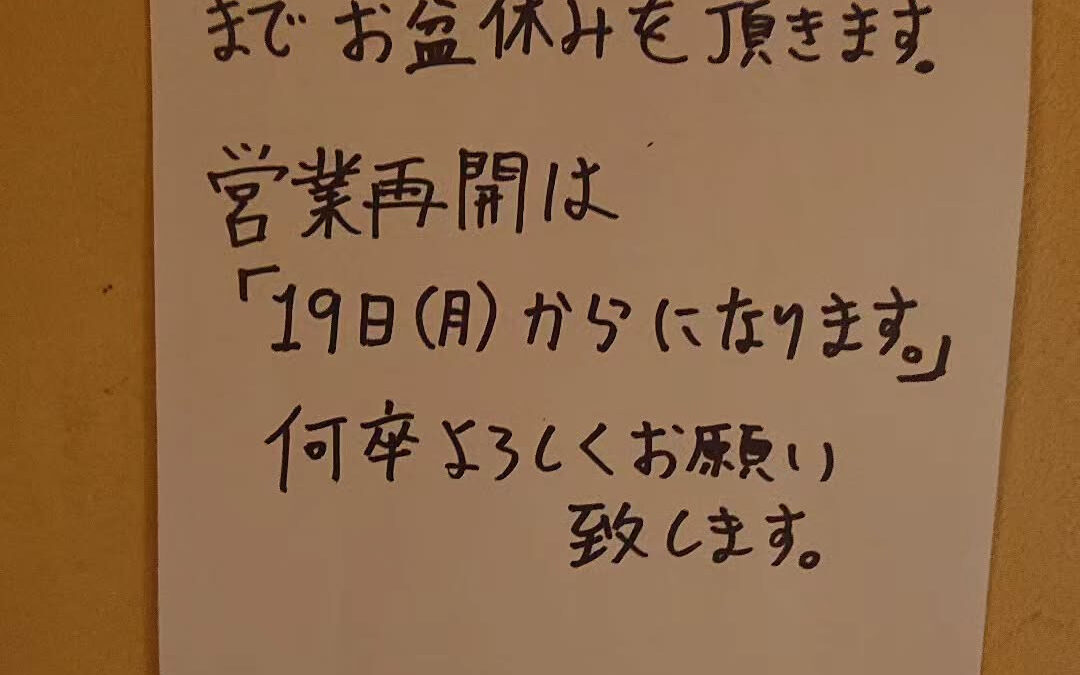 までお盆休みを頂きます。
営業再開は
「19日(月)からになります。」
何卒よろしくお願い
致します。